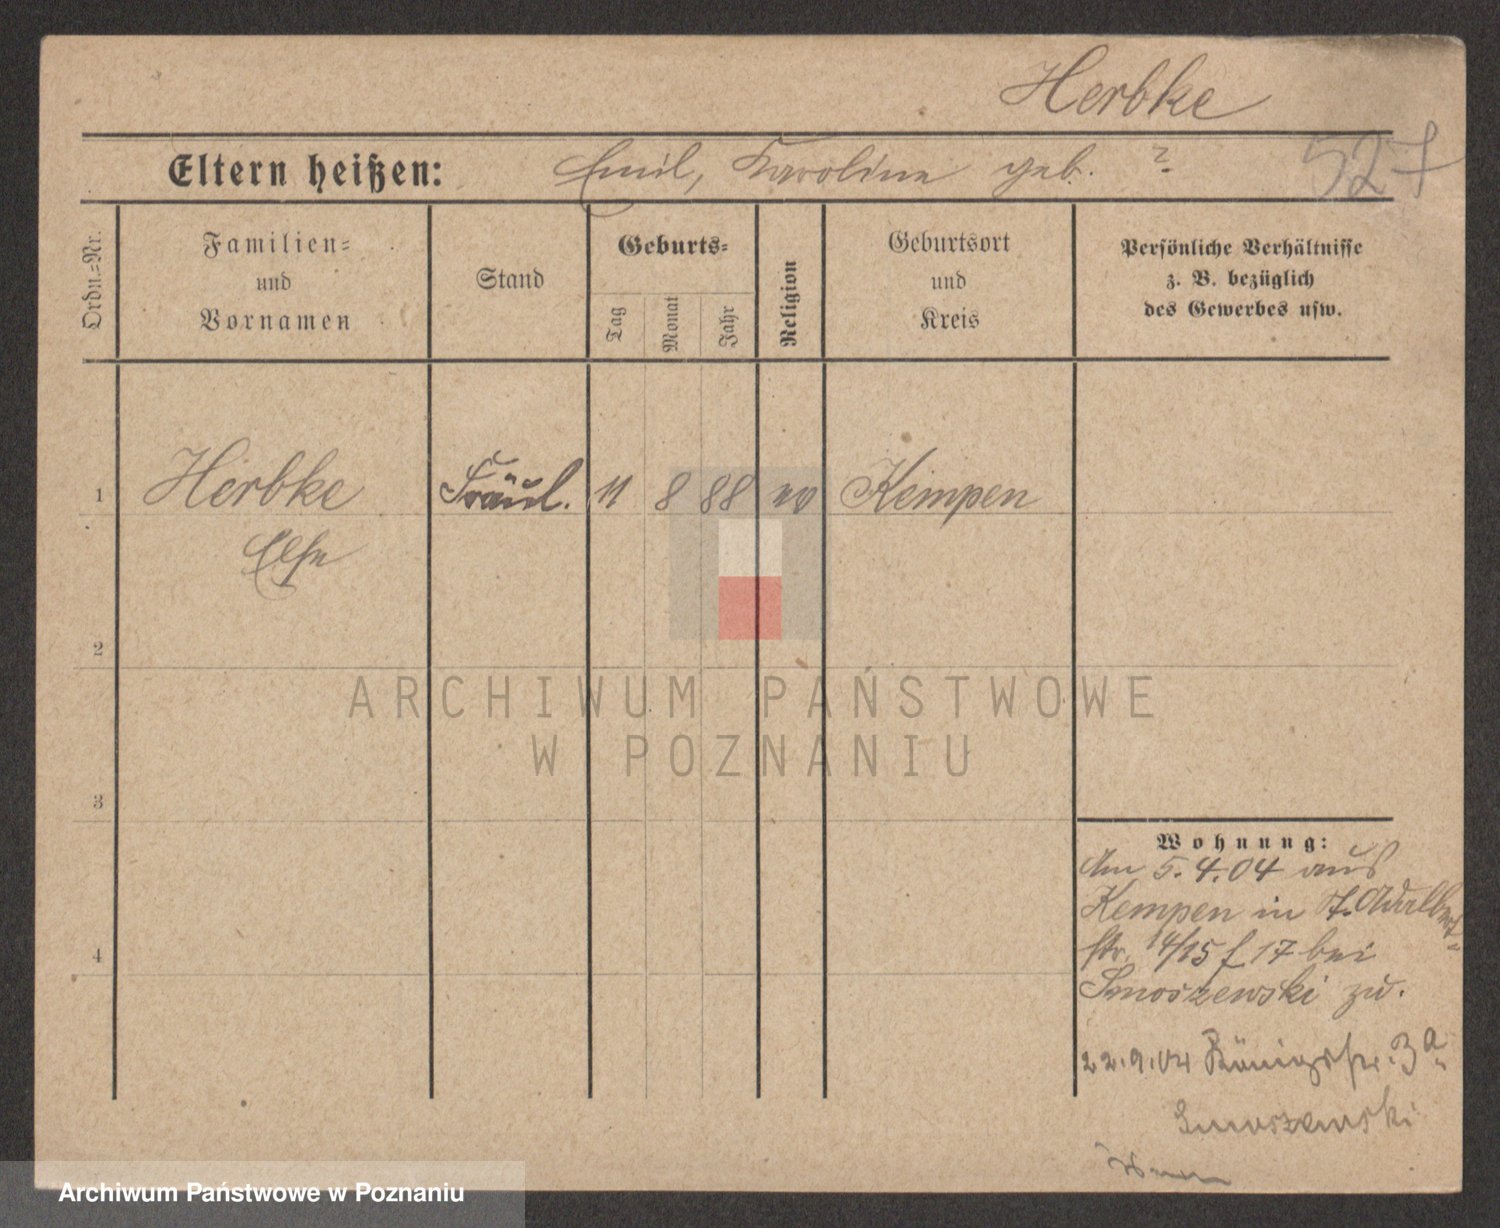 Herbke
527
Eltern heißen: Emil, Karoline geb. ?
Ordn.=Nr.
Familien=
und
Vornamen
Stand
Geburts=
Tag
Monat
Jahr
Religion
Geburtsort
und
Kreis
Persönliche Verhältnisse
z. B. bezüglich
des Gewerbes usw.
1 Herbke Fräul. 11 8 88 Kempen
Else
2
ARCHIWUM PAŃSTWOWE
W POZNANIU
3
4
Wohnung:
Am 5.4.04 aus
Kempen in St. Adalbert-
str. 14/15 f 17 bei
Smoszewski zu.
22.9.04 Königsstr. 3a
Smoszewski
Archiwum Państwowe w Poznaniu